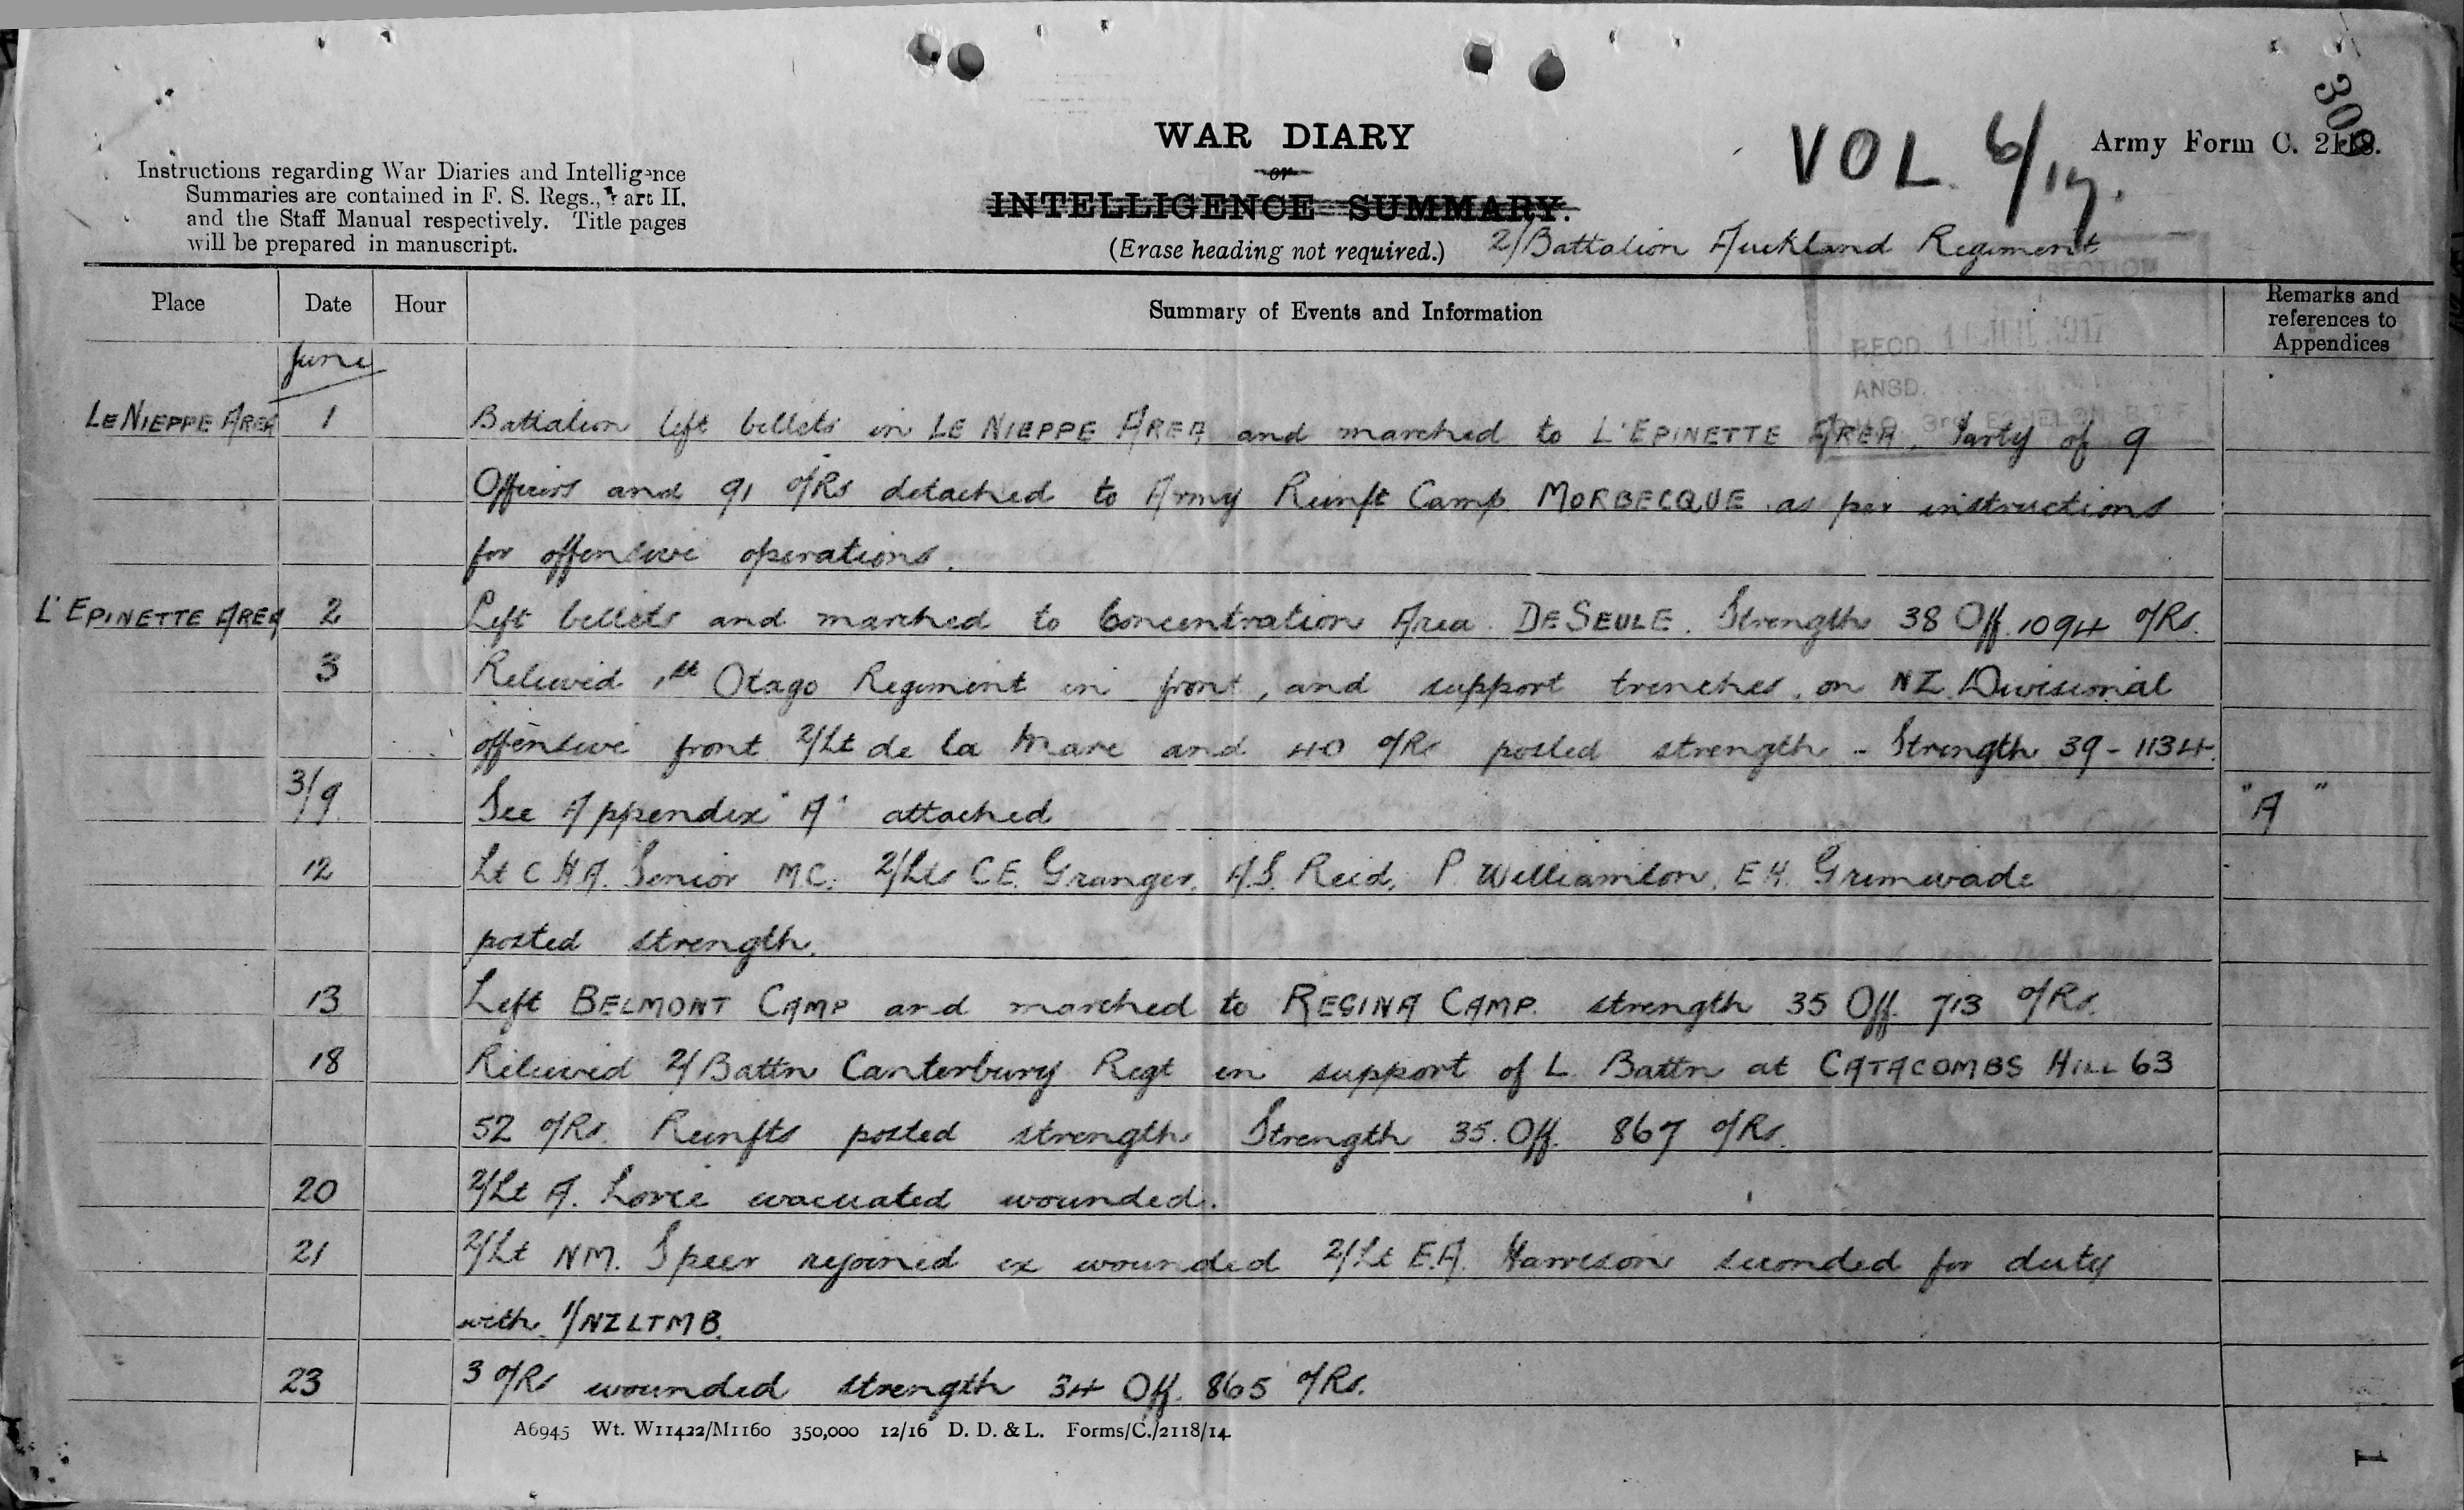 309
WAR DIARY
or
INTELLIGENCE SUMMARY.
(Erase heading not required.)
VOL. 6/17.
Army Form C. 2118.
Instructions regarding War Diaries and Intelligence
Summaries are contained in F. S. Regs., Part II.
and the Staff Manual respectively. Title pages
will be prepared in manuscript.
2/Battalion Auckland Regiment
SECTION
RECD. JUL 1917
ANSD.
3rd ECHELON B.E.F
Place Date Hour Summary of Events and Information Remarks and references to Appendices
June
LE NIEPPE AREA 1 Battalion left billets in LE NIEPPE AREA and marched to L'EPINETTE AREA. Party of 9
Officers and 91 O/Rs detached to Army Reinft Camp MORBECQUE as per instructions
for offensive operations.
L'EPINETTE AREA 2 Left billets and marched to Concentration Area DE SEULE. Strength 38 Off. 1094 O/Rs.
3 Relieved 1st Otago Regiment in front, and support trenches, on NZ Divisional
offensive front 2/Lt de la Mare and 40 O/Rs posted strength - Strength 39 - 1134.
3/9 See Appendix "A" attached "A"
12 Lt C H A. Senior M.C. 2/Lts C.E. Granger, A.S. Reid, P. Williamson, E H. Grimwade
posted strength.
13 Left BELMONT CAMP and marched to REGINA CAMP. strength 35 Off. 713 O/Rs.
18 Relieved 2/Battn Canterbury Regt in support of L Battn at CATACOMBS HILL 63
52 O/Rs. Reinfts posted strength Strength 35. Off. 867 O/Rs.
20 2/Lt A. Lorie evacuated wounded.
21 2/Lt NM. Speer rejoined ex wounded 2/Lt E.A. Harrison seconded for duty
with 1/NZLTMB.
23 3 O/Rs wounded strength 34 Off. 865 O/Rs.
A6945 Wt. W11422/M1160 350,000 12/16 D. D. & L. Forms/C./2118/14
1